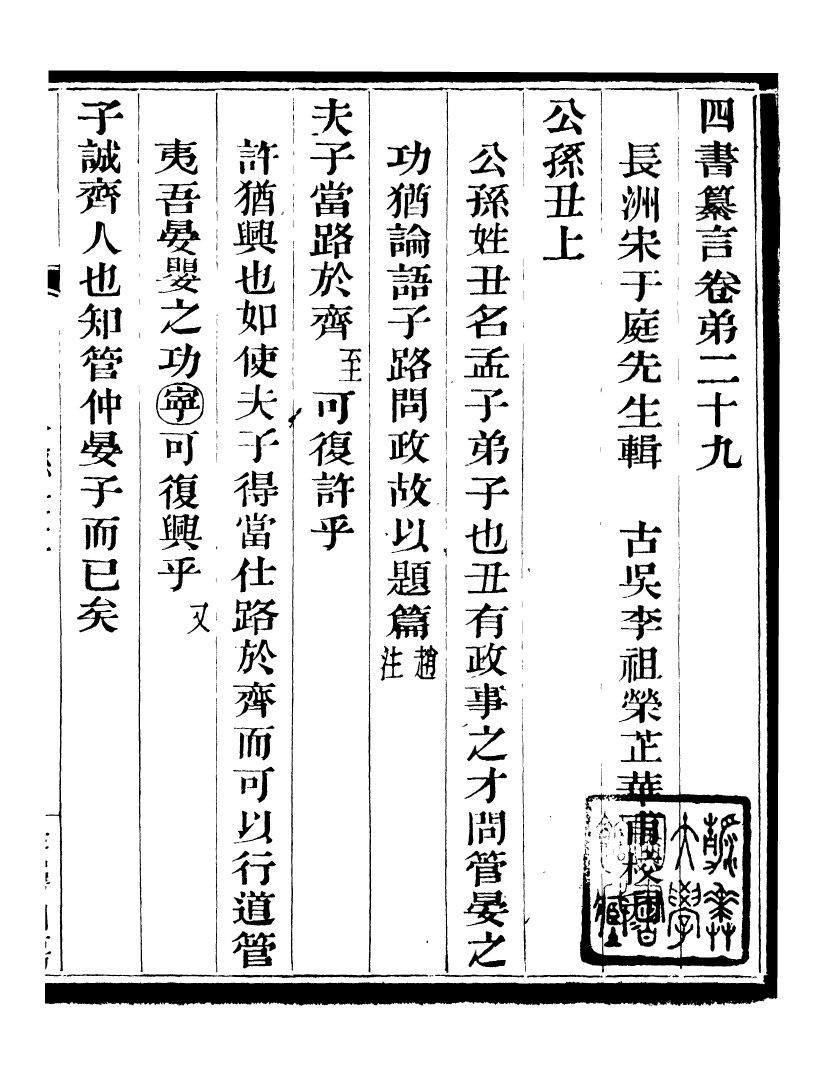 四書纂言卷弟二十九
長洲宋于庭先生輯　古吳李祖榮芷華甫校
公孫丑上
公孫姓丑名孟子弟子也丑有政事之才問管晏之
功猶論語子路問政故以題篇趙注
夫子當路於齊至可復許乎
許猶興也如使夫子得當仕路於齊而可以行道管
夷吾晏嬰之功寧可復興乎又
子誠齊人也知管仲晏子而已矣